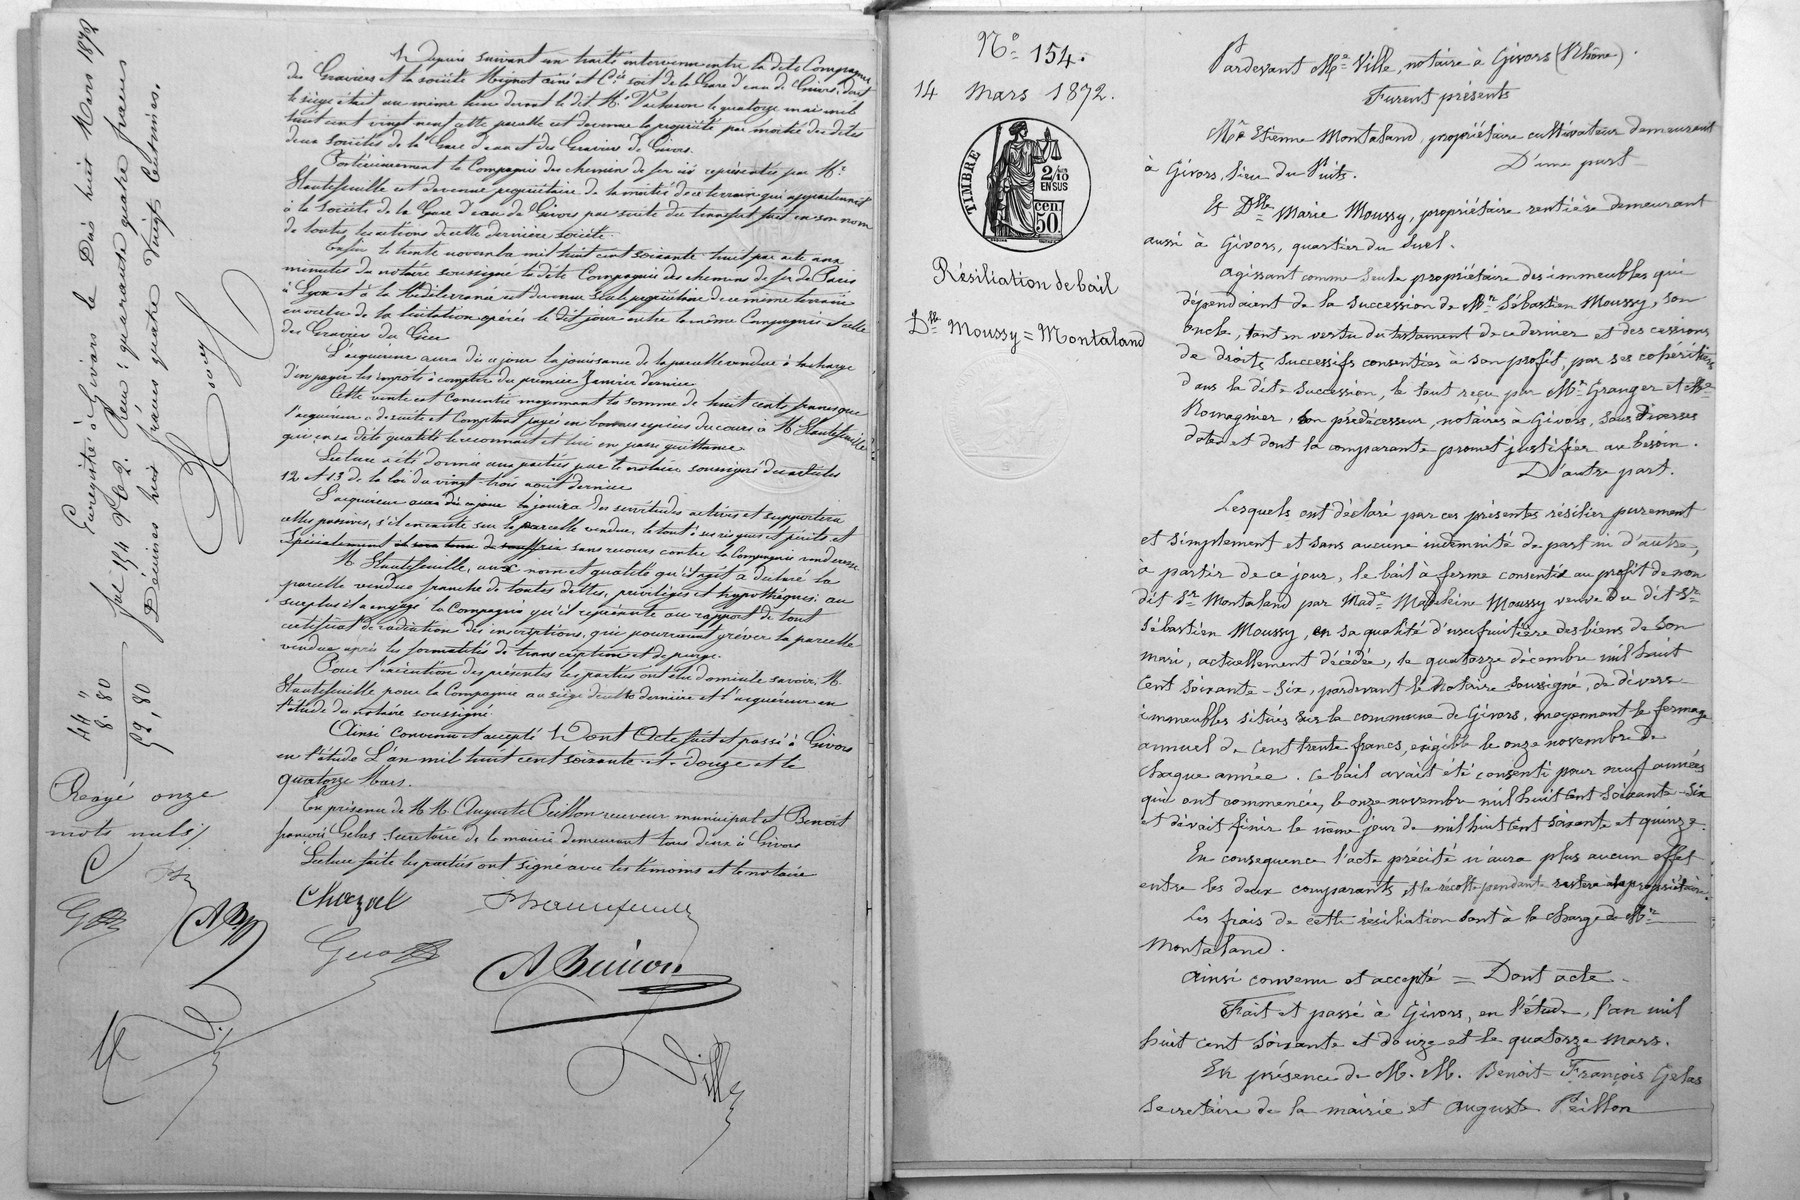 4 Depuis suivant un traité intervenu entre la dite Compagnie
des Graviers et la société Mignot ainé et Cie soit de la Gare d'eau de Givors, dont
le siège était au même lieu devant le dit Me Vacheron le quatorze mai mil
huit cent vingt neuf cette parcelle est devenue la propriété par moitié des dites
deux sociétés de la Gare d'eau et des Graviers de Givors.
Postérieurement la Compagnie des chemins de fer ici représentée par Mr
Hautefeuille est devenue propriétaire de la moitié de ce terrain qui appartenait
à la Société de la Gare d'eau de Givors par suite du transfert fait en son nom
de toutes les actions de cette dernière société.
Enfin le trente novembre mil huit cent soixante huit par acte aux
minutes du notaire soussigné la dite Compagnie des chemins de fer de Paris
à Lyon et à la Méditerranée est devenue seule propriétaire de ce même terrain
en vertu de la licitation opérée le dit jour entre la même Compagnie et celle
des Graviers du Gier
L'acquéreur aura dès ce jour la jouissance de la parcelle vendue à la charge
d'en payer les impôts à compter du premier Janvier dernier.
Cette vente est consentie moyennant la somme de huit cents francs que
l'acquéreur a de suite et comptant payés en bonnes espèces du cours à M Hautefeuille
qui en sa dite qualité le reconnait et lui en passe quittance.
Lecture a été donnée aux parties par le notaire soussigné des articles
12 et 13 de la loi du vingt-trois août dernier
L'acquéreur jouira des servitudes actives et supportera
celles passives, s'il en existe sur la parcelle vendue, le tout à ses risques et périls et
spécialement il sera tenu de souffrir sans recours contre la Compagnie venderesse
M Hautefeuille, aux nom et qualité qu'il agit a déclaré la
parcelle vendue franche de toutes dettes, privilèges et hypothèques; au
surplus il a engagé la Compagnie qu'il représente au rapport de tout
certificat de radiation des inscriptions qui pourraient grever la parcelle
vendue après les formalités de transcription et de purge.
Pour l'exécution des présentes les parties ont élu domicile savoir, M.
Hautefeuille pour la Compagnie au siège de cette dernière et l'acquéreur en
l'étude du notaire soussigné
Ainsi convenu et accepté Dont Acte fait et passé à Givors
en l'étude L'an mil huit cent soixante et douze et le
quatorze Mars.
En présence de MM. Auguste Peillon receveur municipal et Benoit
françois Gelas secrétaire de la mairie demeurant tous deux à Givors
Lecture faite les parties ont signé avec les témoins et le notaire
Chazal
Hautefeuille
Gelas
A Peillon
Ville
Enregistré à Givors le Dix huit Mars 1872
fol 154 V C 2. Reçu : quarante quatre francs
Décimes huit francs quatre Vingt Centimes.
44 "
8. 80
52, 80
Rayé onze
mots nuls
No 154.
14 Mars 1872.
TIMBRE
2/10
EN SUS
cen.
50.
Résiliation de bail
Dlle Moussy = Montaland
Pardevant Me Ville, notaire à Givors (Rhône).
Furent présents
Mr Etienne Montaland, propriétaire cultivateur demeurant
à Givors, lieu du Puits.
D'une part
Et Dlle Marie Moussy, propriétaire rentière demeurant
aussi à Givors, quartier du Suel.
Agissant comme seule propriétaire des immeubles qui
dépendaient de la succession de Mr Sébastien Moussy, son
oncle, tant en vertu du testament de ce dernier et des cessions
de droits successifs consenties à son profit, par ses cohéritiers
dans la dite succession, le tout reçu par Me Granger et Me
Romagnier, son prédécesseur, notaires à Givors, sous diverses
dates et dont la comparante promet justifier au besoin.
D'autre part.
Lesquels ont déclaré par ces présentes résilier purement
et simplement et sans aucune indemnité de part ni d'autre,
à partir de ce jour, le bail à ferme consenti au profit de mon
dit Sr Montaland par Made Madeleine Moussy veuve du dit Sr
Sébastien Moussy, en sa qualité d'usufruitière des biens de son
mari, actuellement décédée, le quatorze décembre mil huit
cent soixante-six, pardevant le Notaire soussigné, de divers
immeubles situés sur la commune de Givors, moyennant le fermage
annuel de cent trente francs, exigible le onze novembre de
chaque année. Ce bail avait été consenti pour neuf années
qui ont commencé, le onze novembre mil huit cent soixante-six
et devait finir le même jour de mil huit cent soixante et quinze.
En conséquence l'acte précité n'aura plus aucun effet
entre les deux comparants et la récolte pendante restera à la propriétaire.
Les frais de cette résiliation sont à la charge de Mr
Montaland.
Ainsi convenu et accepté = Dont acte.
Fait et passé à Givors, en l'étude, l'an mil
huit cent soixante et douze et le quatorze Mars.
En présence de M. M. Benoit-François Gelas
Secrétaire de la mairie et Auguste Peillon